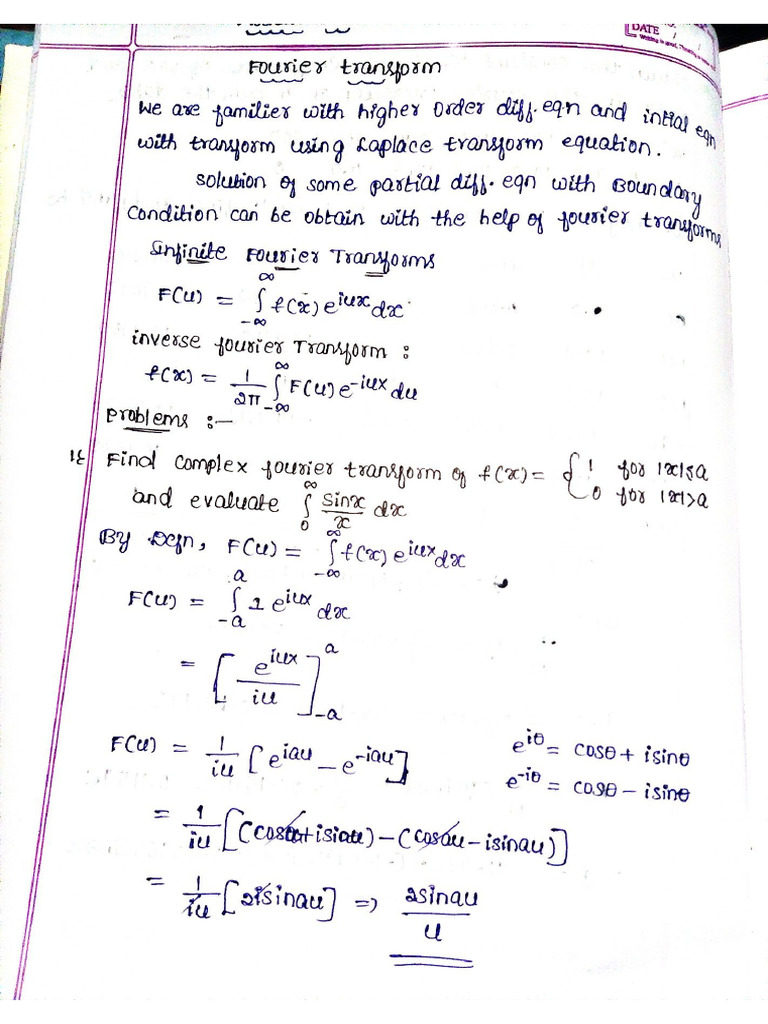 DATE
Fourier transform
We are familier with higher Order diff.eqn and intial eqn
with transform using Laplace transform equation.
solution of some partial diff. eqn with Boundary
Condition can be obtain with the help of fourier transforms
Infinite Fourier Transforms
F(u) = ∫_{-∞}^{∞} f(x) e^{iux} dx
inverse fourier Transform :
f(x) = 1/2π ∫_{-∞}^{∞} F(u) e^{-iux} du
problems :-
1) Find complex fourier transform of f(x) = { 1 for |x|≤a
0 for |x|>a
and evaluate ∫_{0}^{∞} sinx/x dx
By Defn, F(u) = ∫_{-∞}^{∞} f(x) e^{iux} dx
F(u) = ∫_{-a}^{a} 1 e^{iux} dx
= [ e^{iux} / iu ]_{-a}^{a}
F(u) = 1/iu [ e^{iau} - e^{-iau} ]
e^{iθ} = cosθ + isinθ
e^{-iθ} = cosθ - isinθ
= 1/iu [ (cosau + isinau) - (cosau - isinau) ]
= 1/iu [ 2isinau ] => 2sinau/u